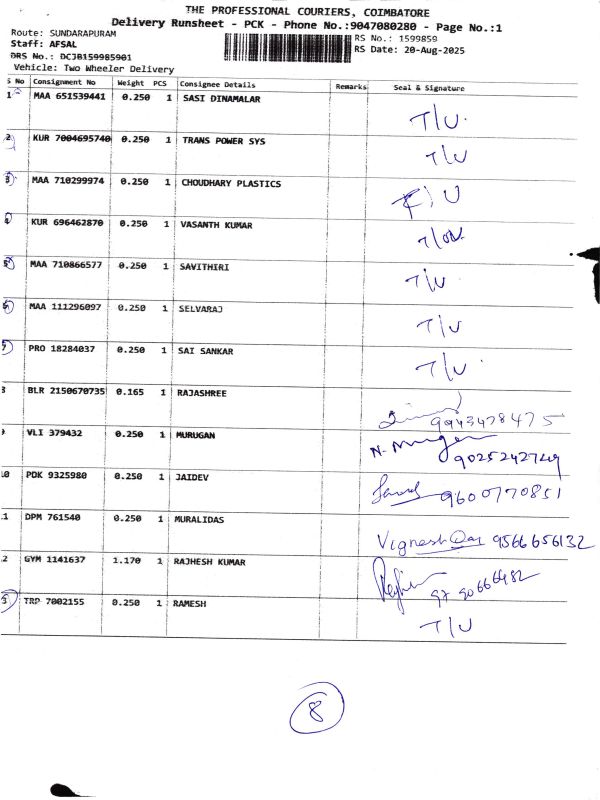 THE PROFESSIONAL COURIERS, COIMBATORE
Delivery Runsheet - PCK - Phone No.:9047080280 - Page No.:1
Route: SUNDARAPURAM
RS No.: 1599859
Staff: AFSAL
RS Date: 20-Aug-2025
DRS No.: DCJB159985901
Vehicle: Two Wheeler Delivery
S No Consignment No Weight PCS Consignee Details Remarks Seal & Signature
1 MAA 651539441 0.250 1 SASI DINAMALAR T/U
2 KUR 7004695740 0.250 1 TRANS POWER SYS T/U
3 MAA 710299974 0.250 1 CHOUDHARY PLASTICS T/U
4 KUR 696462870 0.250 1 VASANTH KUMAR
5 MAA 710866577 0.250 1 SAVITHIRI T/U
6 MAA 111296097 0.250 1 SELVARAJ T/U
7 PRO 18284037 0.250 1 SAI SANKAR T/U
8 BLR 2150670735 0.165 1 RAJASHREE 9943478475
9 VLI 379432 0.250 1 MURUGAN N. Murugan 9025242749
10 PDK 9325980 0.250 1 JAIDEV 9600770851
11 DPM 761540 0.250 1 MURALIDAS 9566656132
12 GYM 1141637 1.170 1 RAJHESH KUMAR 9790666482
13 TRP 7002155 0.250 1 RAMESH T/U
8